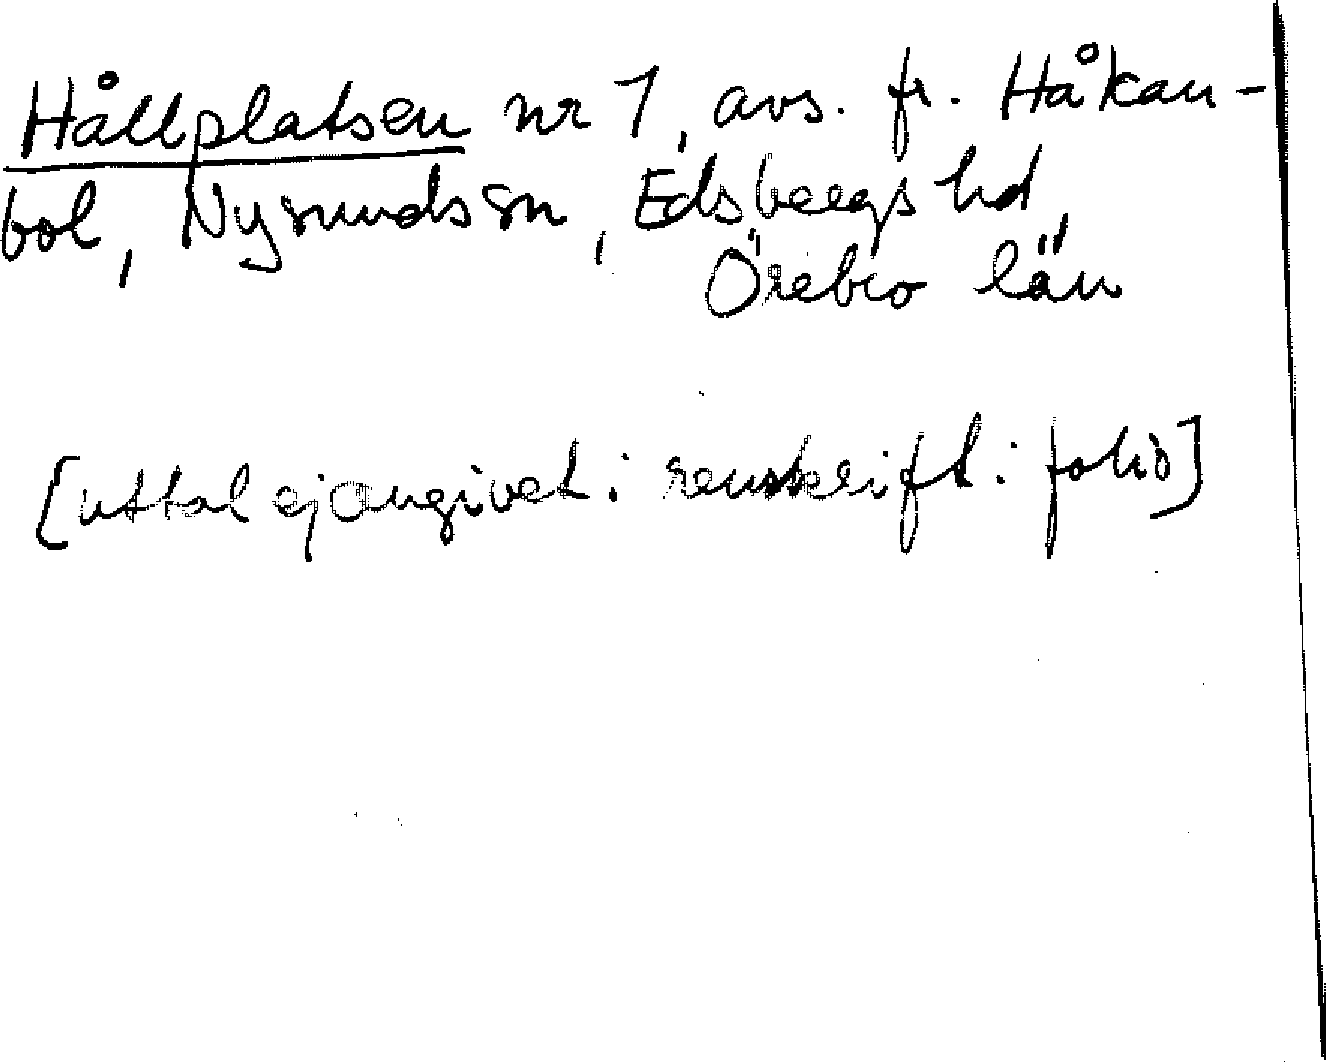 Hållplatsen nr 1, avs. fr. Håkan-
bol, Nysunds sn, Edsbergs hd,
Örebro län
[uttal ej angivet i renskrift i folio]